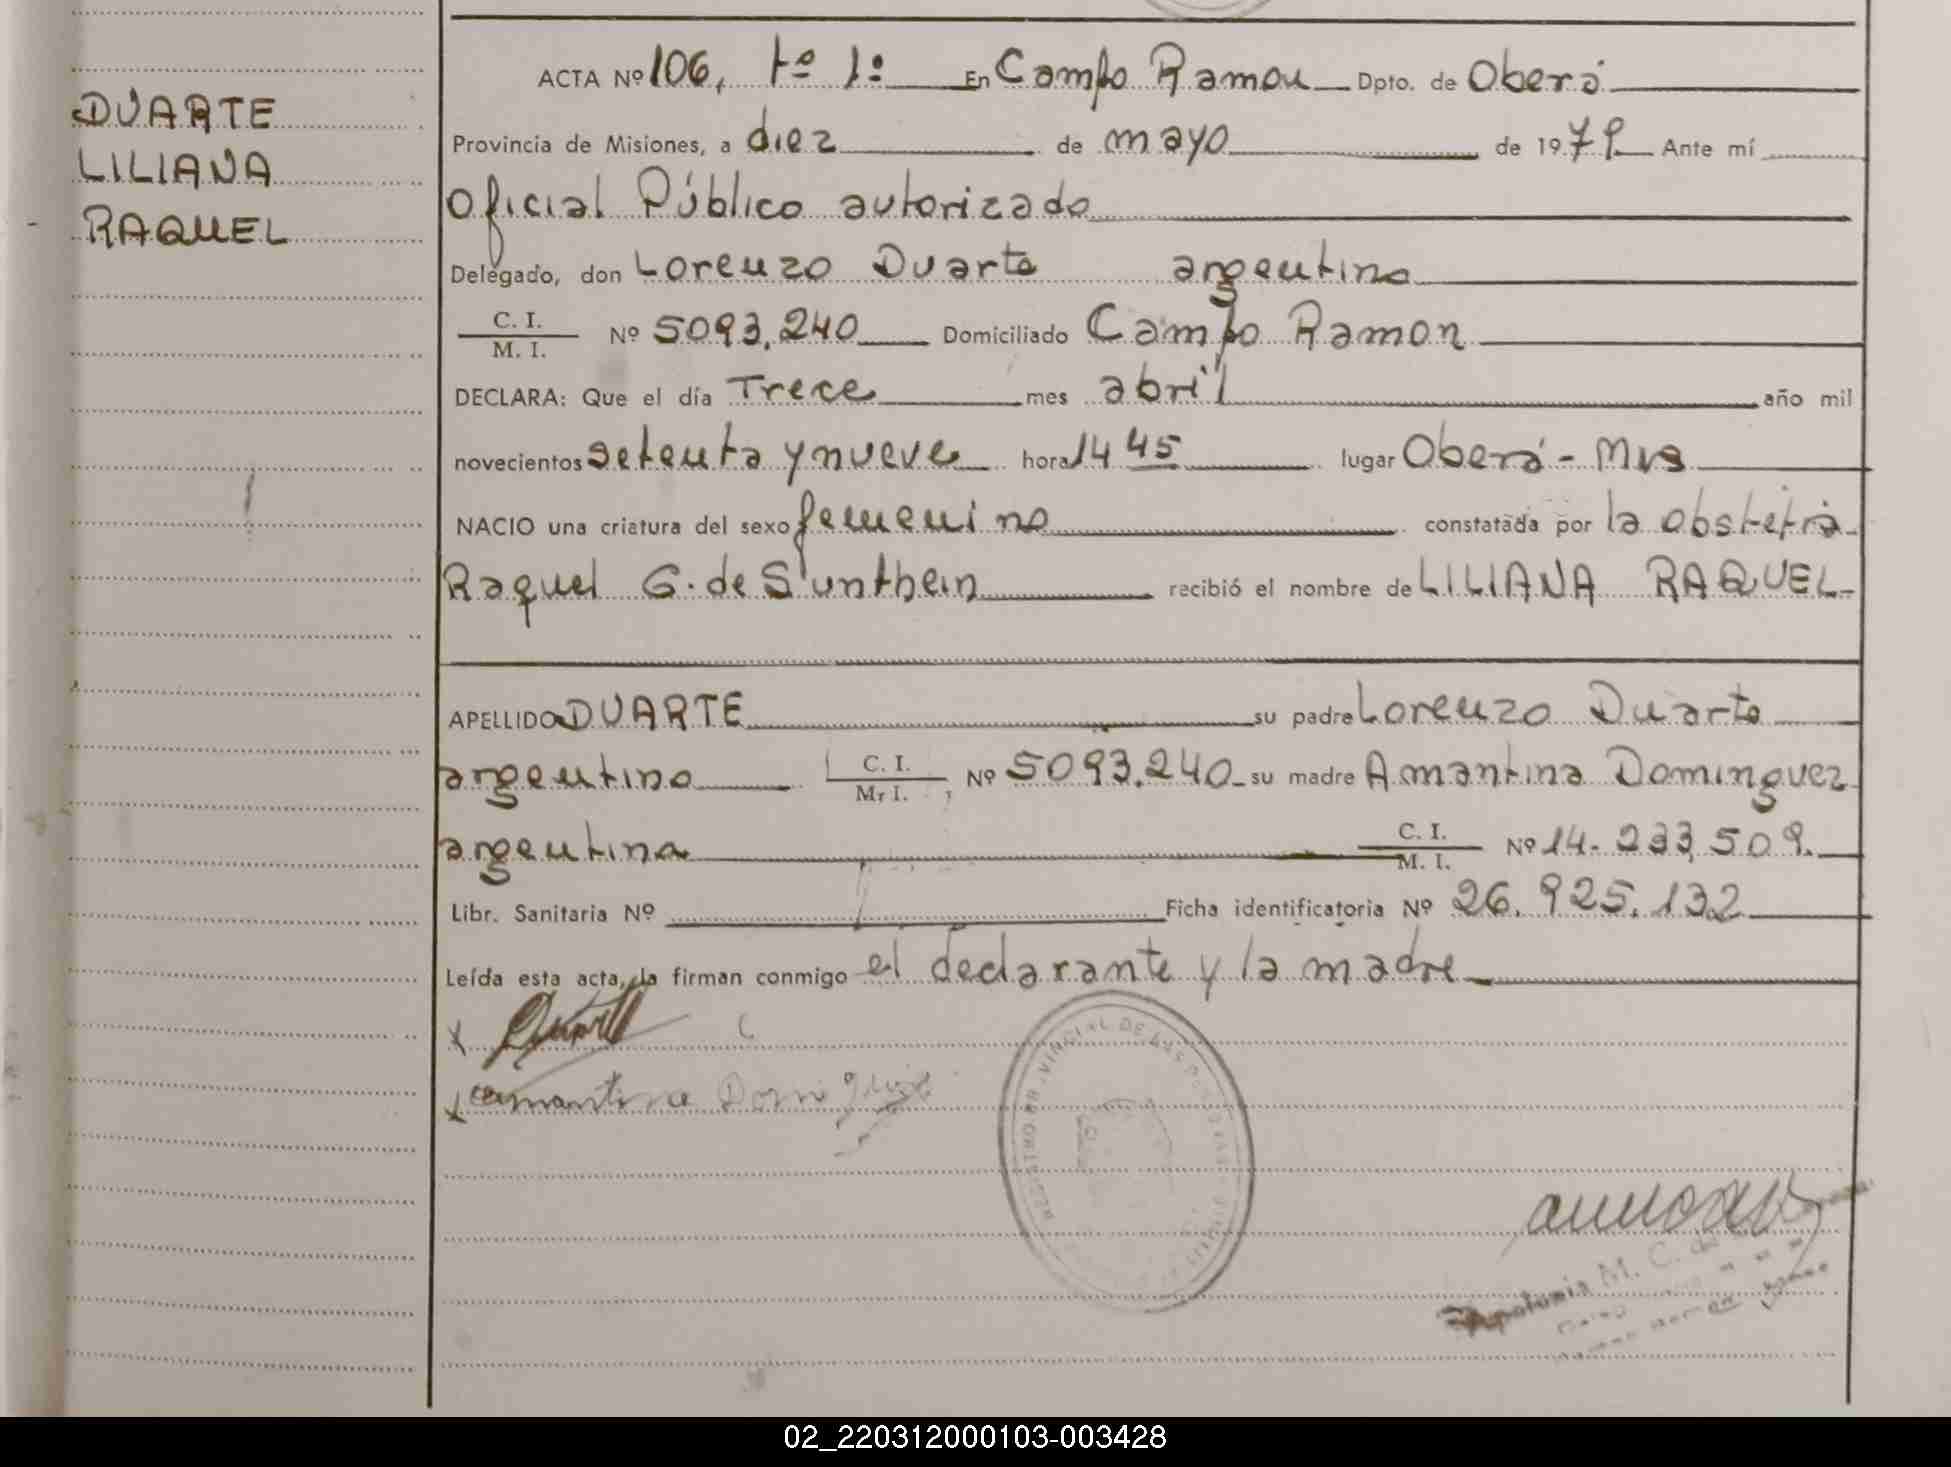 DUARTE
LILIANA
RAQUEL
ACTA Nº 106, tº 1º En Campo Ramon Dpto. de Oberá
Provincia de Misiones, a diez de mayo de 1979. Ante mí
Oficial Público autorizado
Delegado, don Lorenzo Duarte argentino
C. I.
M. I. Nº 5093.240 Domiciliado Campo Ramon
DECLARA: Que el día Trece mes abril año mil
novecientos setenta y nueve hora 14 45 lugar Oberá - Mns
NACIO una criatura del sexo femenino constatada por la obstetra
Raquel G. de Sunthein recibió el nombre de LILIANA RAQUEL-
APELLIDO DUARTE su padre Lorenzo Duarte
argentino C. I.
M. I. Nº 5093.240 su madre Amantina Dominguez
argentina C. I.
M. I. Nº 14.233,509.
Libr. Sanitaria Nº Ficha identificatoria Nº 26.925.132
Leída esta acta, la firman conmigo el declarante y la madre
x Duarte
x amantina Dominguez
Apolonia M. C. de
02_220312000103-003428